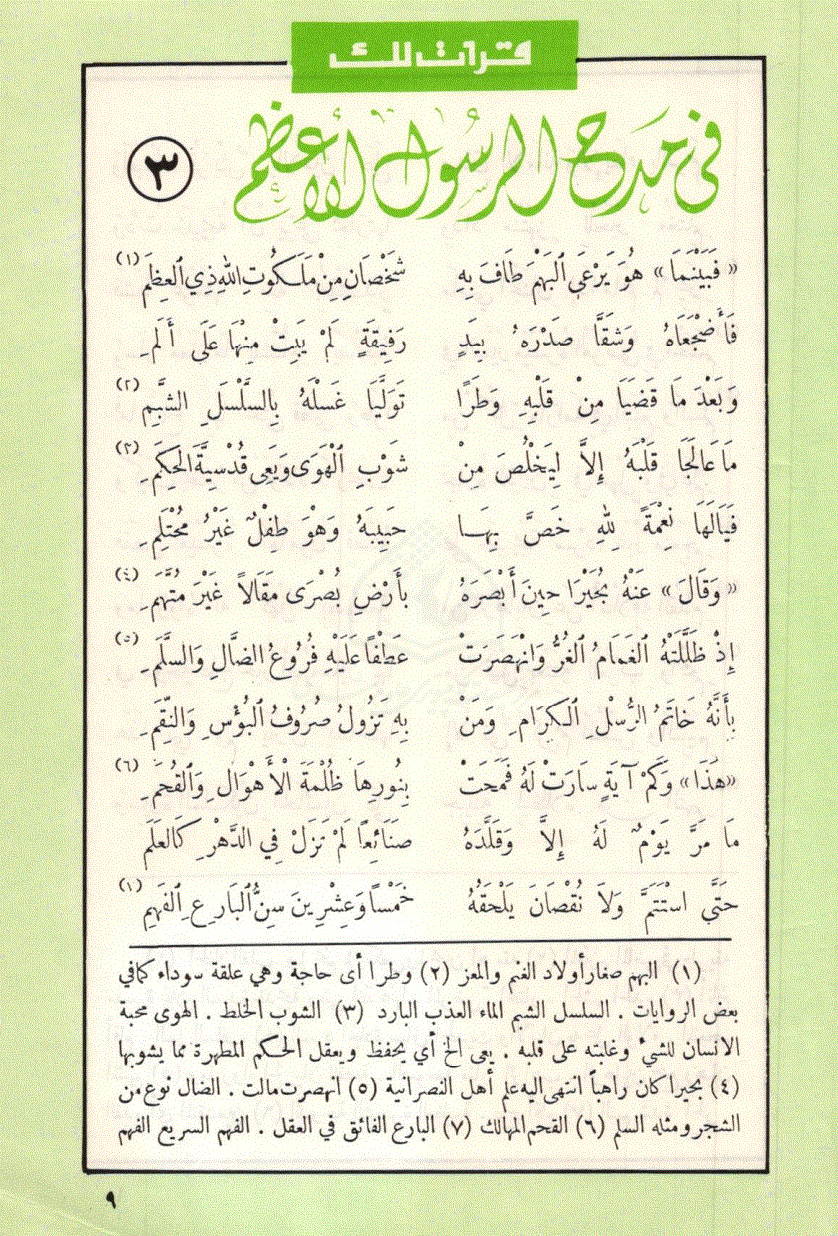 قرأت لك
في مدح الرسول الأعظم
٣
«فَبَيْنَمَا» هُوَ يَرْعَى البَهْمَ طَافَ بِهِ شَخْصَانِ مِنْ مَلَكُوتِ اللهِ ذِي العِظَمِ (١)
فَأَضْجَعَاهُ وَشَقَّا صَدْرَهُ بِيَدٍ رَفِيقَةٍ لَمْ يَبِتْ مِنْهَا عَلَى أَلَمِ
وَبَعْدَ مَا قَضَيَا مِنْ قَلْبِهِ وَطَرًا تَوَلَّيَا غَسْلَهُ بِالسَّلْسَلِ الشَّبِمِ (٢)
مَا عَالَجَا قَلْبَهُ إِلَّا لِيَخْلُصَ مِنْ شَوْبِ الْهَوَى وَيَعِي قُدْسِيَّةَ الحِكَمِ (٣)
فَيَالَهَا نِعْمَةً لِلهِ خَصَّ بِهَا حَبِيبَهُ وَهْوَ طِفْلٌ غَيْرُ مُحْتَلِمِ
«وَقَالَ» عَنْهُ بَحِيرَا حِينَ أَبْصَرَهُ بِأَرْضِ بُصْرَى مَقَالاً غَيْرَ مُتَّهَمِ (٤)
إِذْ ظَلَّلَتْهُ الغَمَامُ الغُرُّ وَانْهَصَرَتْ عَطْفًا عَلَيْهِ فُرُوعُ الضَّالِ وَالسَّلَمِ (٥)
بِأَنَّهُ خَاتَمُ الرُّسْلِ الكِرَامِ وَمَنْ بِهِ تَزُولُ صُرُوفُ البُؤْسِ وَالنِّقَمِ
«هٰذَا» وَكَمْ آيَةٍ سَارَتْ لَهُ فَمَحَتْ بِنُورِهَا ظُلْمَةَ الْأَهْوَالِ وَالقُحَمِ (٦)
مَا مَرَّ يَوْمٌ لَهُ إِلَّا وَقَلَّدَهُ صَنَائِعًا لَمْ تَزَلْ فِي الدَّهْرِ كَالعَلَمِ
حَتَّى اسْتَتَمَّ وَلَا نُقْصَانَ يَلْحَقُهُ خَمْسًا وَعِشْرِينَ سِنُّ البَارِعِ الفَهِمِ (١)
(١) البهم صغار أولاد الغنم والمعز (٢) وطرا أى حاجة وهي علقة سوداء كما في
بعض الروايات . السلسل الشبم الماء العذب البارد (٣) الشوب الخلط . الهوى محبة
الانسان للشيء وغلبته على قلبه . يعى الخ أي يحفظ ويعقل الحكم المطهرة مما يشوبها
(٤) بحيرا كان راهباً انتهى اليه علم أهل النصرانية (٥) انهصرت مالت . الضال نوع من
الشجر ومثله السلم (٦) القحم المهالك (٧) البارع الفائق في العقل . الفهم السريع الفهم
٩